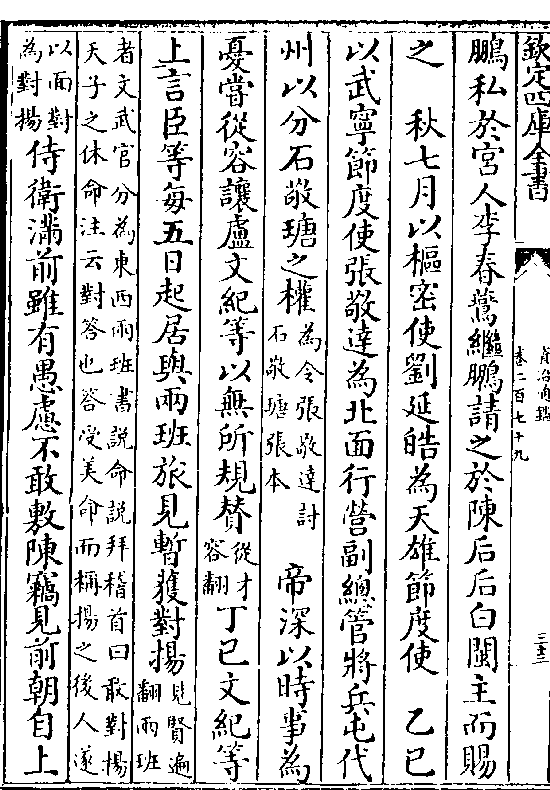 欽定四庫全書
資治通鑑
卷二百七十九
鵬私於宮人李春鷰繼鵬請之於陳后后白閩主而賜
之　秋七月以樞密使劉延皓為天雄節度使　乙巳
以武寧節度使張敬達為北面行營副總管將兵屯代
州以分石敬瑭之權為令張敬達討石敬瑭張本　帝深以時事為
憂嘗從容讓盧文紀等以無所規賛從才容翻丁巳文紀等
上言臣等每五日起居與兩班旅見暫獲對揚見賢遍翻兩班
者文武官分為東西兩班書說命說拜稽首曰敢對揚
天子之休命注云對答也答受美命而稱揚之後人遂
以面對為對揚侍衛滿前雖有愚慮不敢敷陳竊見前朝自上